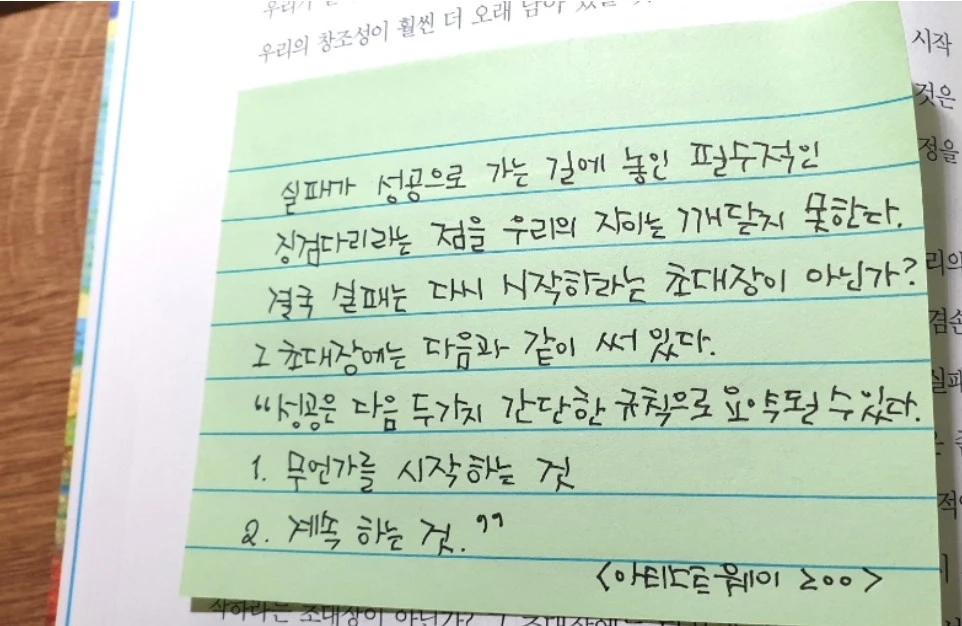 우리의 창조성이 훨씬 더 오래 남아
시작
것은
정을
실패가 성공으로 가는 길에 놓인 필수적인
징검다리라는 점을 우리의 자아는 깨닫지 못한다.
리의
결국 실패는 다시 시작하라는 초대장이 아닌가?
겸손
그 초대장에는 다음과 같이 써 있다.
실패
"성공은 다음 두가지 간단한 규칙으로 요약될 수 있다.
1. 무언가를 시작하는 것
2. 계속 하는 것."
<아티스트웨이 200>
작하라는 초대장이 아닌가? 그 초대장에는